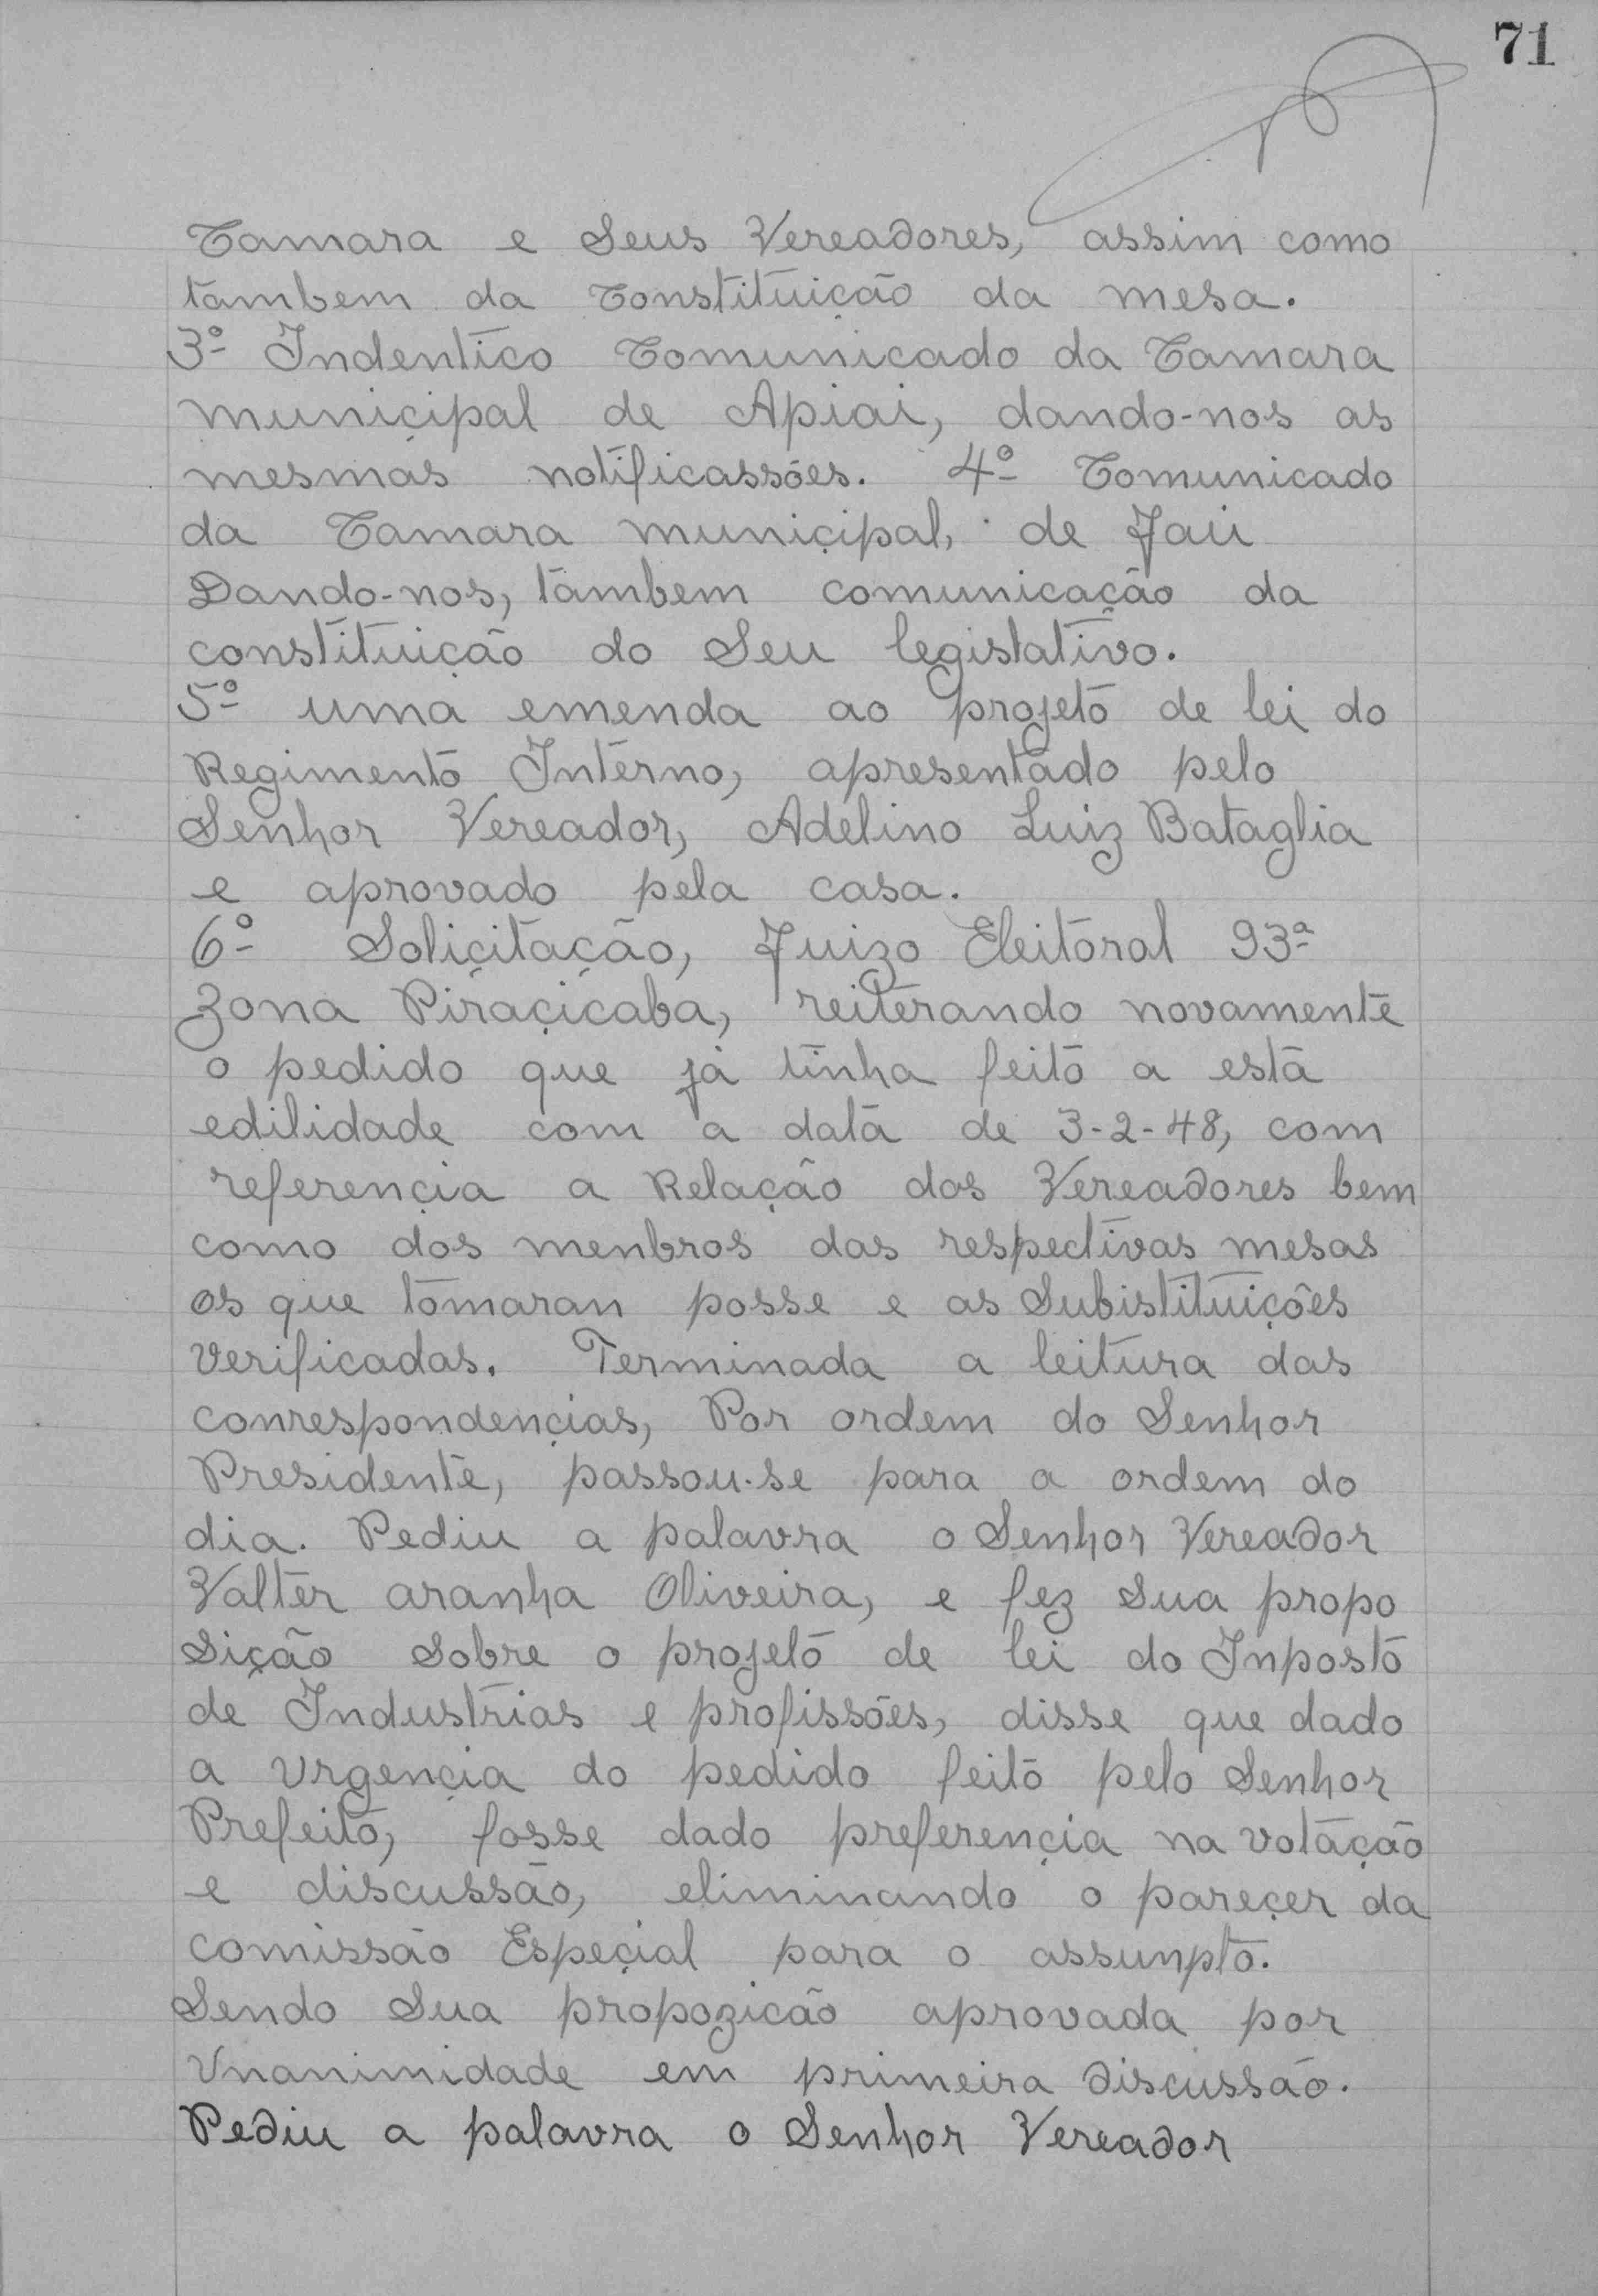 71
Camara e Seus Vereadores, assim como
tambem da Constituição da mesa.
3º Indentico Comunicado da Camara
municipal de Apiai, dando-nos as
mesmas notificassões. 4º Comunicado
da Camara municipal, de Jaú
Dando-nos, tambem comunicação da
constituição do Seu legistativo.
5º uma emenda ao projeto de lei do
Regimento Interno, apresentado pelo
Senhor Vereador, Adelino Luiz Bataglia
e aprovado pela casa.
6º Soliçitação, Juizo Eleitoral 93ª
Zona Piraçiçaba, reiterando novamente
o pedido que já tinha feito a esta
edilidade com a data de 3-2-48, com
referençia a Relação dos Vereadores bem
como dos menbros das respectivas mesas
os que tomaran posse e as Subistituições
verificadas. Terminada a leitura das
conrespondençias, Por ordem do Senhor
Presidente, passou-se para a ordem do
dia. Pediu a palavra o Senhor Vereador
Valter aranha Oliveira, e fez Sua propo
Sição Sobre o projeto de lei do Inposto
de Industrias e profissões, disse que dado
a Urgençia do pedido feito pelo Senhor
Prefeito, fosse dado preferençia na votação
e discussão, eliminando o pareçer da
comissão Espeçial para o assunpto.
Sendo Sua propozicão aprovada por
Unanimidade em primeira discussão.
Pediu a palavra o Senhor Vereador